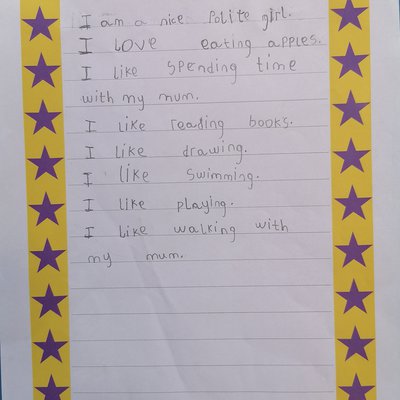 I am a nice Polite girl.
I LOVE eating apples.
I like spending time
with my mum.
I like reading books.
I like drawing.
I like swimming.
I like playing.
I like walking with
my mum.